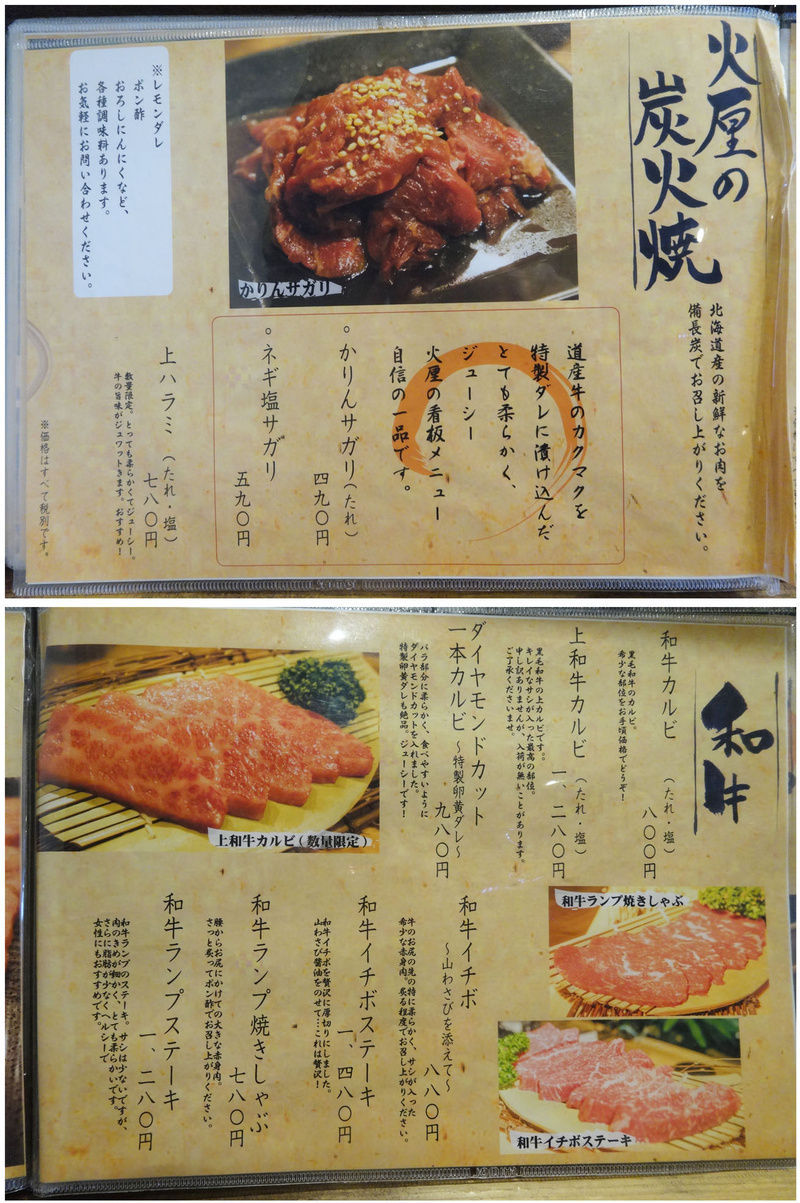 火厘の
炭火焼
北海道産の新鮮なお肉を
備長炭でお召し上がりください。
かりんサガリ
※レモンダレ
ポン酢
おろしにんにくなど、
各種調味料あります。
お気軽にお問い合わせください。
道産牛のカクマクを
特製ダレに漬け込んだ
とても柔らかく、
ジューシー
火厘の看板メニュー
自信の一品です。
。かりんサガリ(たれ)
四九〇円
。ネギ塩サガリ
五九〇円
上ハラミ (たれ・塩)
七八〇円
数量限定。とっても柔らかくてジューシー。
牛の旨味がジュワットきます。おすすめ!
※価格はすべて税別です。
和牛
和牛カルビ (たれ・塩)
八〇〇円
黒毛和牛のカルビ。
希少な部位をお手頃価格でどうぞ!
上和牛カルビ (たれ・塩)
一、二八〇円
黒毛和牛の上カルビです。。
キレイなサシが入った最高の部位。
申し訳ありませんが、入荷が無いことがあります。
ご了承くださいませ。
ダイヤモンドカット
一本カルビ ~特製卵黄ダレ~
九八〇円
バラ部分に柔らかく、食べやすいように
ダイヤモンドカットを入れました。
特製卵黄ダレも絶品。ジューシーです!
上和牛カルビ(数量限定)
和牛ランプ焼きしゃぶ
和牛イチボステーキ
和牛イチボ
~山わさびを添えて~
八八〇円
牛のお尻の先の特に柔らかく、サシが入った
希少な赤身肉。炙る程度でお召し上がりください。
和牛イチボステーキ
一、四八〇円
和牛イチボを贅沢に厚切りにしました。
山わさび醤油をのせて…これは贅沢!
和牛ランプ焼きしゃぶ
七八〇円
腰からお尻にかけての大きな赤身肉。
さっと炙ってポン酢でお召し上がりください。
和牛ランプステーキ
一、二八〇円
和牛ランプのステーキ。サシは少ないですが、
肉のきめが細かく、とても柔らかいです。
さらに脂肪が少なくヘルシーで
女性にもおすすめです。